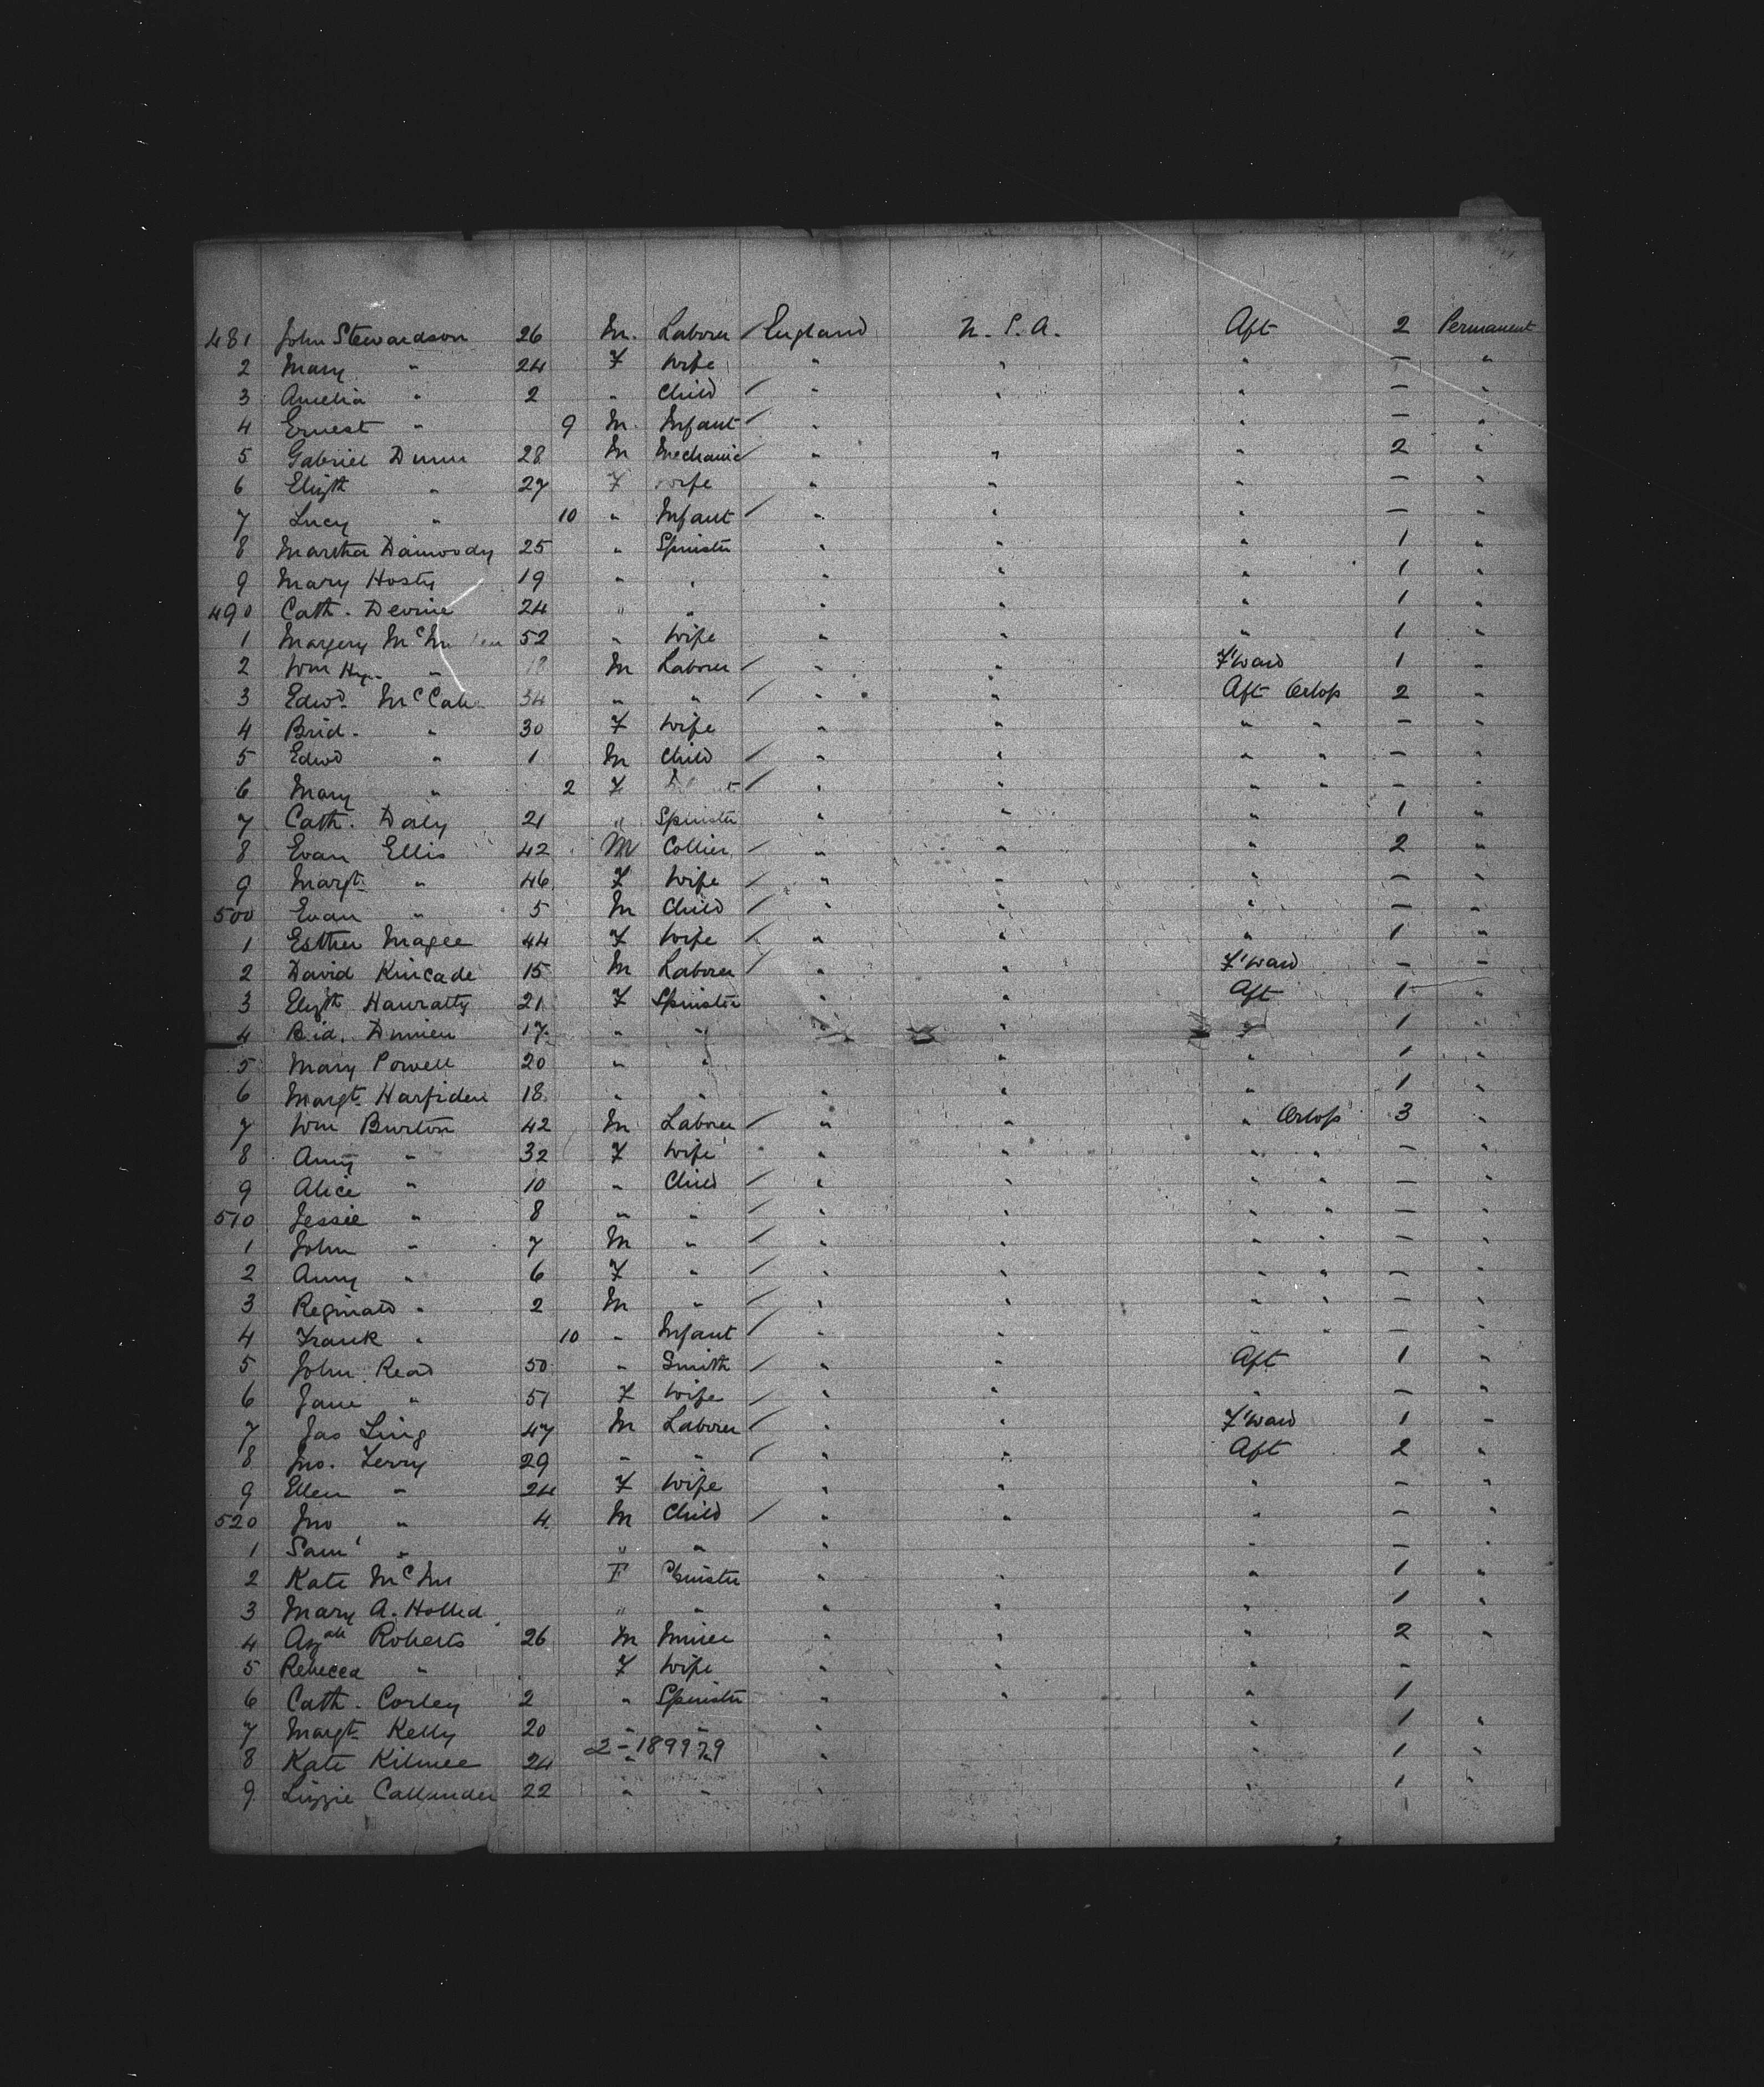 481 John Stewardson 26 M. Laborer / England U.S.A. Aft 2 Permanent
2 Mary " 24 F Wife " " " — "
3 Amelia " 2 " Child / " " " — "
4 Ernest " 9 M. Infant / " " — "
5 Gabriel Dunn 28 M Mechanic / " " " 2 "
6 Elizth " 27 F Wife " " " — "
7 Lucy " 10 " Infant / " " " — "
8 Martha Damoody 25 " Spinster " " " 1 "
9 Mary Hosty 19 " " " " " 1 "
490 Cath. Devine 24 " " " " " 1 "
1 Margery 52 " Wife " " " 1 "
2 Wm Hy. " M Laborer / " " F'ward 1 "
3 Edwd. McCabe 34 " " / " " Aft Orlop 2 "
4 Brid. " 30 F Wife " " " " — "
5 Edwd " 1 M Child / " " " " — "
6 Mary " 2 F / " " " " — "
7 Cath. Daly 21 " Spinster " " " 1 "
8 Evan Ellis 42 M Collier / " " " 2 "
9 Margt. " 46 F Wife / " " " — "
500 Evan " 5 M Child / " " " — "
1 Esther Magee 44 F Wife / " " " 1 "
2 David Kincade 15 M Laborer / " " F'ward — "
3 Elizth Hanratty 21 F Spinster " " Aft 1 "
4 Bid. 17 " " " " " 1 "
5 Mary Powell 20 " " " " 1 "
6 Margt. 18 " " " " " 1 "
7 Wm Burton 42 M Laborer / " " " Orlop 3 "
8 Anny " 32 F Wife " " " " — "
9 Alice " 10 " Child / " " " " — "
510 Jessie " 8 " " / " " " " — "
1 John " 7 M " / " " " " — "
2 Anny " 6 F " / " " " " — "
3 Reginald " 2 M " / " " " " — "
4 Frank " 10 " Infant / " " " " — "
5 John Read 50 " Smith / " " Aft 1 "
6 Jane " 51 F Wife / " " " — "
7 Jas Ling 47 M Laborer / " " F'ward 1 "
8 Jno. Terry 29 " " / " " Aft 2 "
9 Ellen " 24 F Wife " " " — "
520 Jno " 4 M Child / " " " — "
1 Saml " " " " " — "
2 Kate F Spinster " " " 1 "
3 Mary A. " " " " " 1 "
4 Roberts 26 M Miner " " " 2 "
5 Rebecca " F Wife " " " —
6 Cath. Corley 2 " Spinster " " " 1
7 Margt. Kelly 20 " " " " 1 "
2-189979
8 Kate Kilmee 24 " " " " 1 "
9 Lizzie Callander 22 " " " " 1 "